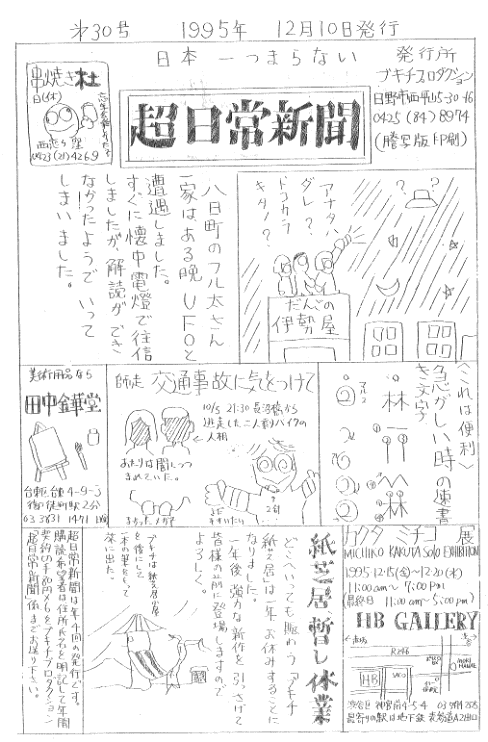 第30号 1995年 12月10日発行
日本一つまらない
超日常新聞
発行所
ブキチプロダクション
日野市西平山5-30-16
0425(84)8974
(謄写版印刷)
串焼き杜
西恋ヶ窪
0423(21)4269
八日町のフル太さん
一家はある晩UFOと
遭遇しました。
すぐに懐中電燈で往信
しましたが、解読ができ
なかったようでいって
しまいました。
アナタハ
ダレ?
ドコカラ
キタノ?
?
?
だんごの
伊勢屋
<これは便利>
忙がしい時の速書
き文字
林
美術用品なら
田中金華堂
台東区台東4-9-3
御徒町駅2分
03 3831 1471
師走 交通事故に気をつけて
10/5 21:30 長沼橋から
逃走した二人乗りバイクの
人相
あたりは闇につつ
まれていた。
カクタ ミチコ 展
MICHIKO KAKUTA Solo EXHIBITION
1995・12・15(金)〜12・20(水)
11:00am〜7:00pm
(最終日 11:00am〜5:00pm)
HB GALLERY
HB
渋谷区神宮前4-5-4
最寄りの駅は地下鉄表参道A2出口
紙芝居暫し休業
どこへいっても賑わう「ブキチ
紙芝居」は一年お休みすることに
なりました。
一年後強力な新作を引っさげて
皆様の前に登場しますので
よろしく。
超日常新聞は年十回の発行です。
購読希望者は住所氏名を明記して年間
契約切手80円×6をブキチプロダクション
「超日常新聞」係までお送り下さい。